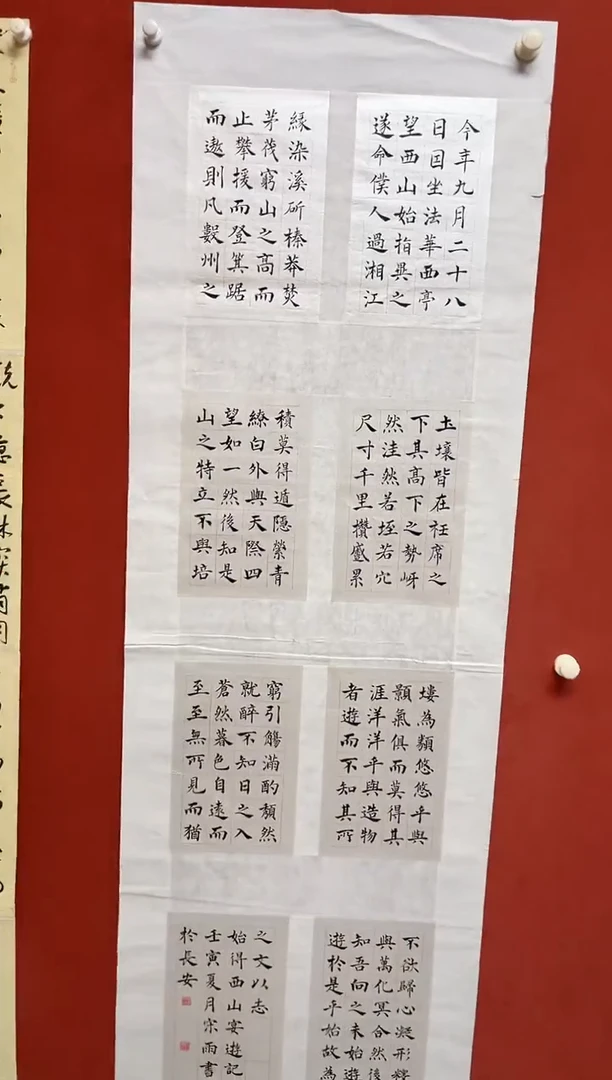 今年九月二十八
日因坐法華西亭
望西山始指異之
遂命僕人過湘江
緣染溪斫榛莽焚
茅茷窮山之高而
止攀援而登箕踞
而遨則凡數州之
土壤皆在衽席之
下其高下之勢岈
然洼然若垤若穴
尺寸千里攢蹙累
積莫得遁隱縈青
繚白外與天際四
望如一然後知是
山之特立不與培
塿為類悠悠乎與
顥氣俱而莫得其
涯洋洋乎與造物
者遊而不知其所
窮引觴滿酌頹然
就醉不知日之入
蒼然暮色自遠而
至至無所見而猶
不欲歸心凝形釋
與萬化冥合然後
知吾向之未始遊
遊於是乎始故為
之文以志
始得西山宴遊記
壬寅夏月宗雨書
於長安